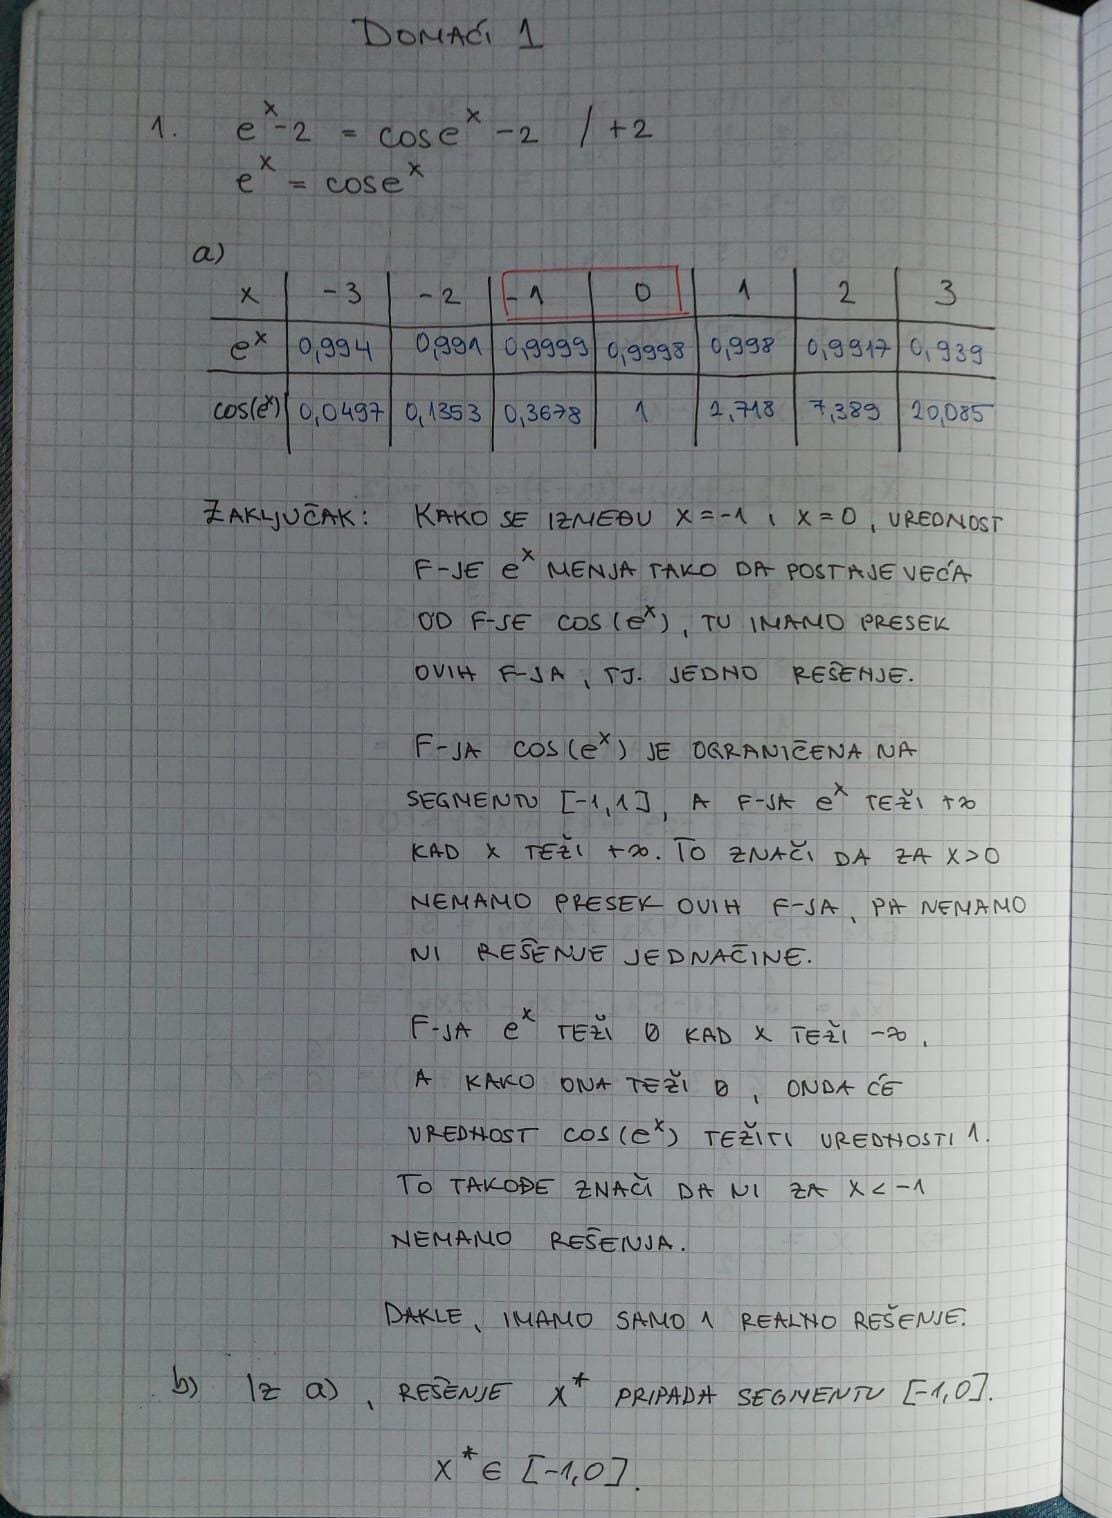 DOMAĆI 1
1. e^x-2 = cose^x -2 / +2
e^x = cose^x
a)
x | -3 | -2 | -1 | 0 | 1 | 2 | 3
e^x | 0,994 | 0,991 | 0,9999 | 0,9998 | 0,998 | 0,9917 | 0,939
cos(e^x) | 0,0497 | 0,1353 | 0,3678 | 1 | 2,718 | 7,389 | 20,085
ZAKLJUČAK: KAKO SE IZMEĐU X=-1 I X=0, VREDNOST
F-JE e^x MENJA TAKO DA POSTAJE VEĆA
OD F-SE COS(e^x), TU IMAMO PRESEK
OVIH F-JA, TJ. JEDNO REŠENJE.
F-JA COS(e^x) JE OGRANIČENA NA
SEGMENTU [-1,1], A F-JA e^x TEŽI +∞
KAD X TEŽI +∞. TO ZNAČI DA ZA X>0
NEMAMO PRESEK OVIH F-JA, PA NEMAMO
NI REŠENJE JEDNAČINE.
F-JA e^x TEŽI 0 KAD X TEŽI -∞,
A KAKO ONA TEŽI 0, ONDA ĆE
VREDNOST COS(e^x) TEŽITI VREDNOSTI 1.
TO TAKOĐE ZNAČI DA NI ZA X<-1
NEMAMO REŠENJA.
DAKLE, IMAMO SAMO 1 REALNO REŠENJE.
b) Iz a), REŠENJE X* PRIPADA SEGMENTU [-1,0].
X* ∈ [-1,0].